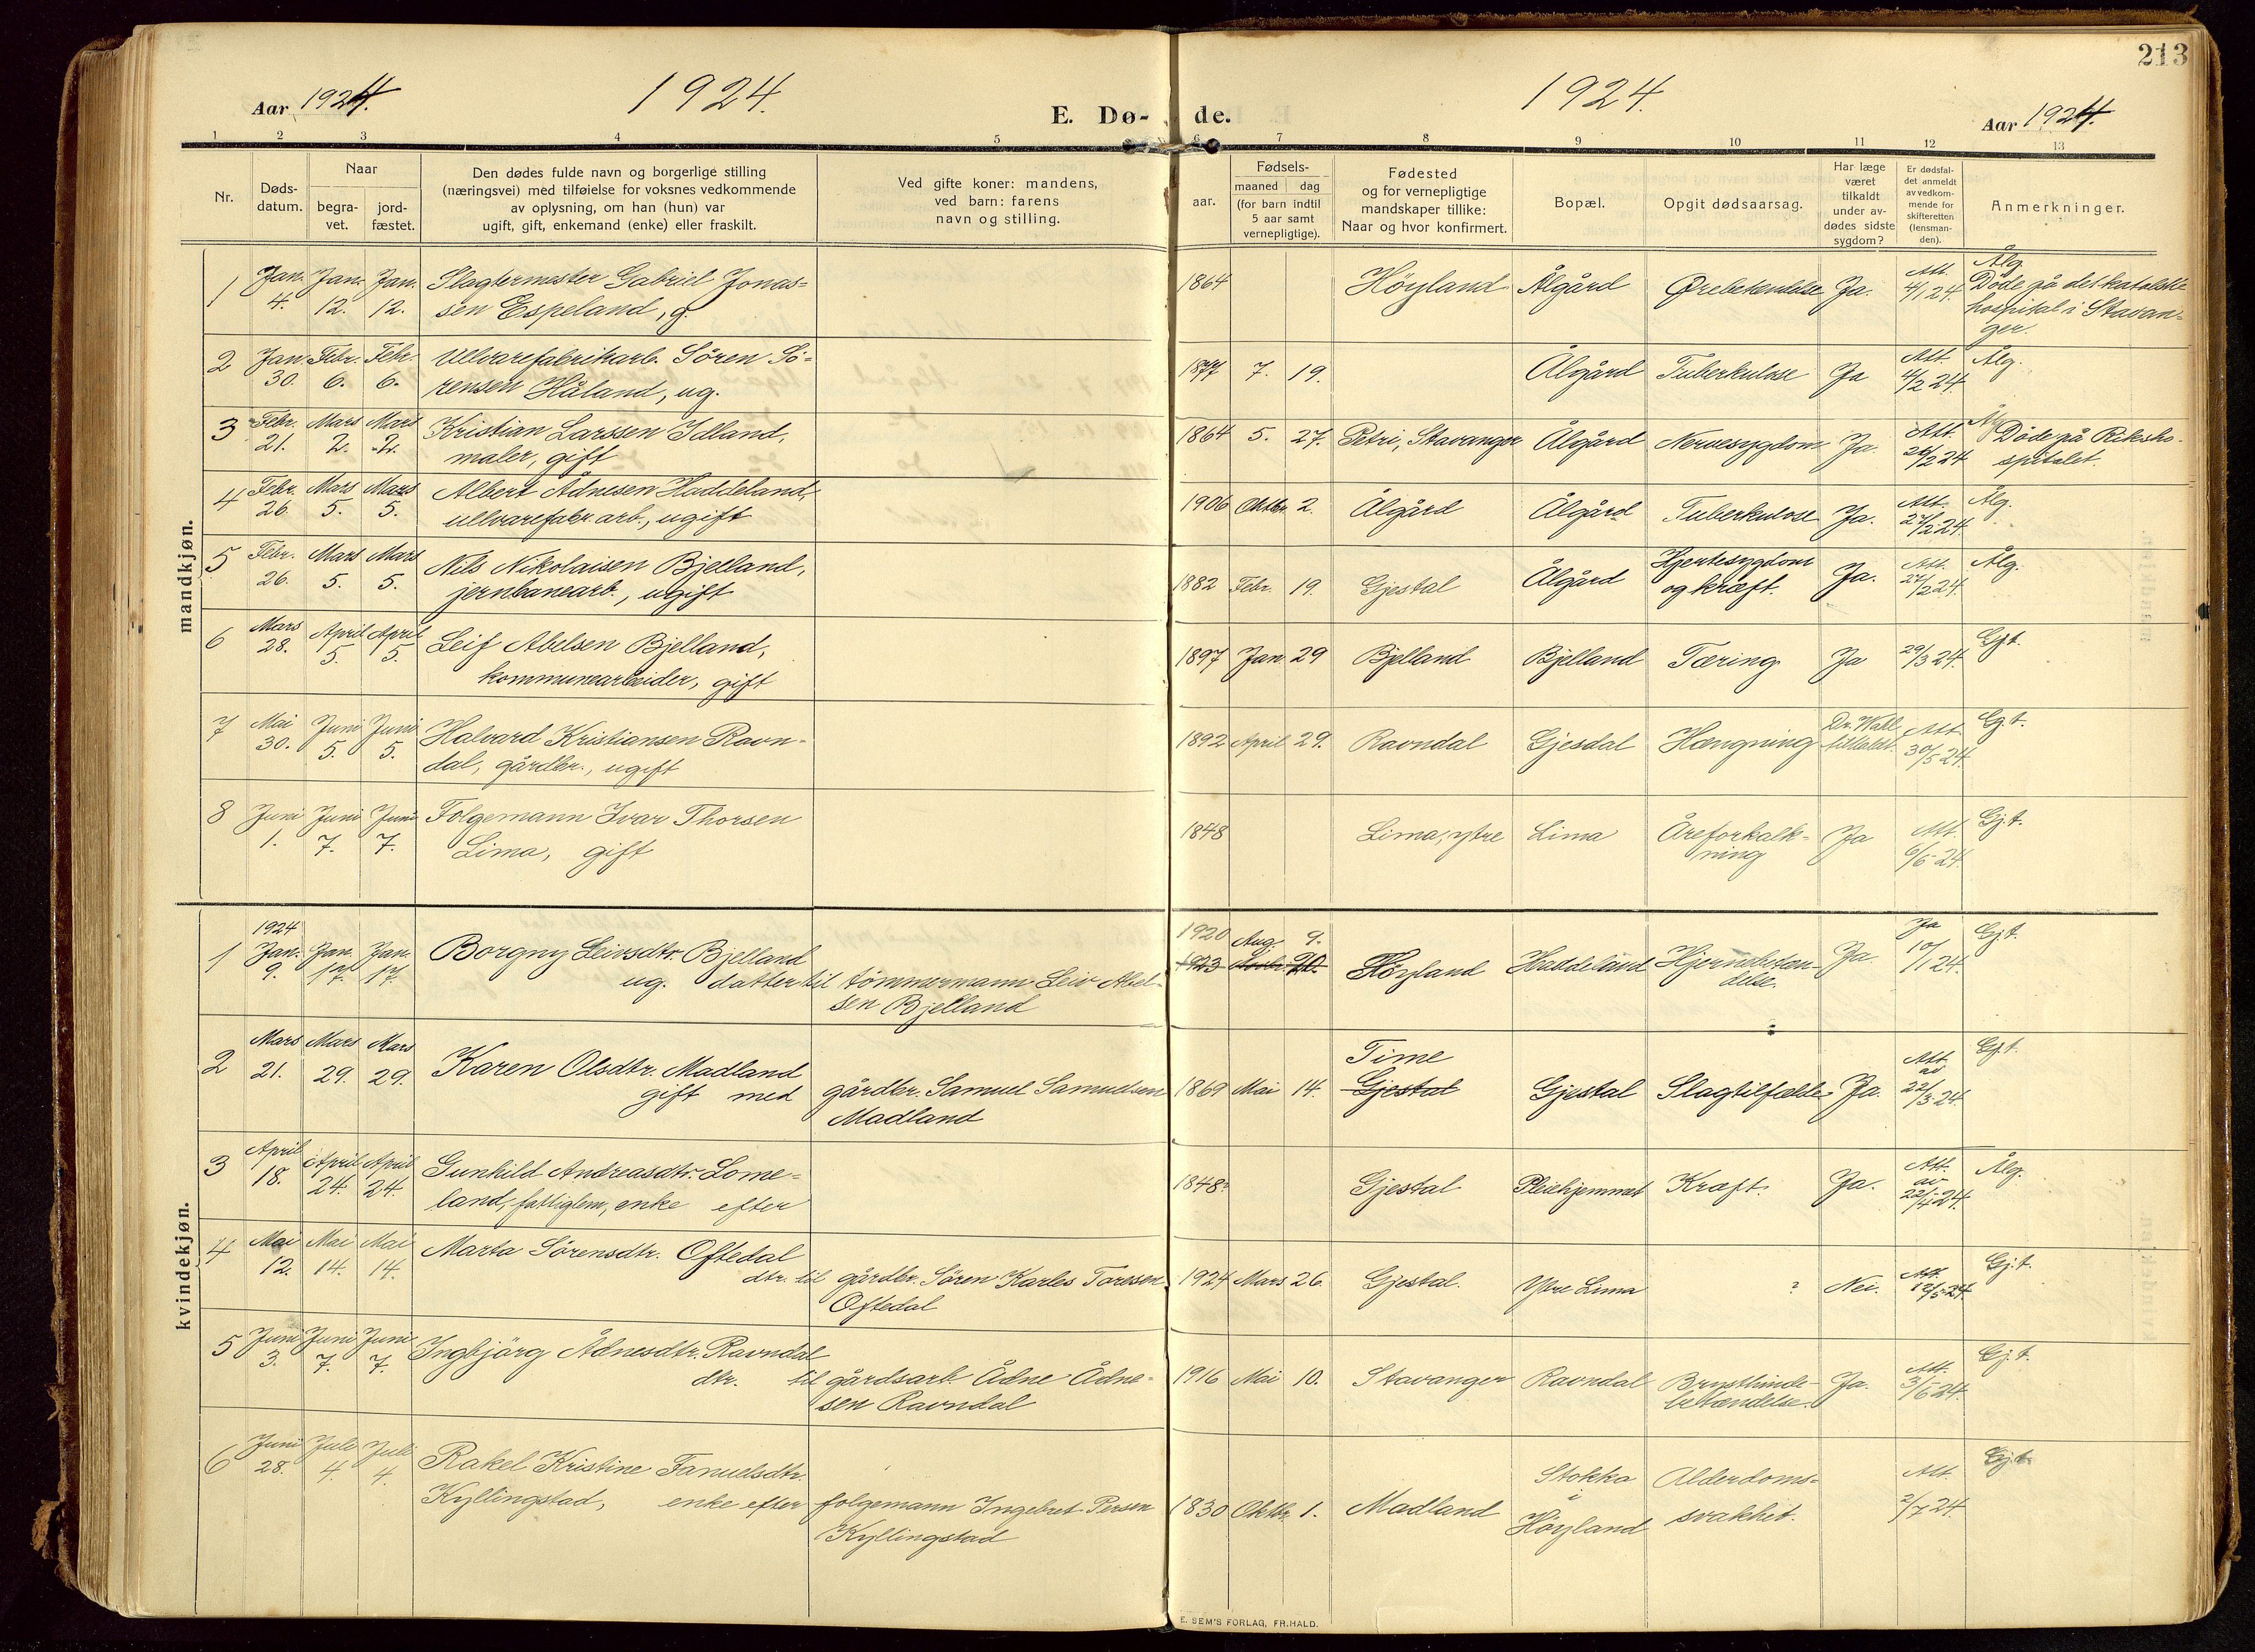 213
Aar 1924.
1924.
E. Dø-
de.
1924.
Aar 1924.
1 2 3 4 5 6 7 8 9 10 11 12 13
Nr.
Døds-
datum.
Naar
begra-
vet.
jord-
fæstet.
Den dødes fulde navn og borgerlige stilling
(næringsvei) med tilføielse for voksnes vedkommende
av oplysning, om han (hun) var
ugift, gift, enkemand (enke) eller fraskilt.
Ved gifte koner: mandens,
ved barn: farens
navn og stilling.
Fødsels-
aar.
maaned dag
(for barn indtil
5 aar samt
vernepligtige).
Fødested
og for vernepligtige
mandskaper tillike:
Naar og hvor konfirmert.
Bopæl.
Opgit dødsaarsag.
Har læge
været
tilkaldt
under av-
dødes sidste
sygdom?
Er dødsfal-
det anmeldt
av vedkom-
mende for
skifteretten
(lensman-
den).
Anmerkninger.
mandkjøn.
1 Jan. 4. Jan. 12. Jan. 12. Slagtermester Gabriel Jonas-
sen Espeland, g.
1864 Höyland Ålgård Ørebetendelse Ja. Att. 4/1 24. Ålg.
Döde på det katolske
hospital i Stavan-
ger.
2 Jan 30. Febr. 6. Febr. 6. Ullvarefabrikarb. Sören Sö-
rensen Håland, ug.
1877 7. 19. Ålgård Tuberkulose Ja Att. 4/2 24. Ålg.
3 Febr. 21. Mars 2. Mars 2. Kristian Larssen Idland,
maler, gift
1864 5. 27. Petri, Stavanger Ålgård Nervesygdom Ja. Att. /2 24 Ålg
Döde på Riksho-
spitalet.
4 Febr. 26. Mars 5. Mars 5. Albert Ådnesen Haddeland,
ullvarefabr. arb., ugift
1906 Oktbr. 2. Ålgård Ålgård Tuberkulose Ja. Att. 27/2 24. Ålg.
5 Febr. 26. Mars 5. Mars 5. Nils Nikolaisen Bjelland,
jernbanearb., ugift
1882 Febr. 19. Gjestal Ålgård Hjertesygdom
og kræft. Ja. Att. 27/2 24. Ålg.
6 Mars 28. April 5. April 5. Leif Abelsen Bjelland,
kommunearbeider, gift
1897 Jan 29 Bjelland Bjelland Tæring Ja 29/3 24. Gjt.
7 Mai 30. Juni 5. Juni 5. Halvard Kristiansen Ravn-
dal, gårdbr., ugift
1892 April 29. Ravndal Gjesdal Hængning Dr. Wall
tilkaldt. Att 30/5 24. Gj.t.
8 Juni 1. Juni 7. Juni 7. Folgemann Ivar Thorsen
Lima, gift
1848 Lima, ytre Lima Åreforkalk-
ning Ja Att. 6/6 24. Gj.t.
kvindekjøn.
1924
1 Jan. 9. Jan. 17. Jan. 17. Borgny Leivsdtr. Bjelland
ug. datter til tömmermann Leiv Abel-
sen Bjelland
1920 Aug. 9.
1923 20. Höyland Haddeland Hjernebetæn-
delse. Ja Ja 10/1 24. Gj.t.
2 Mars 21. Mars 29. Mars 29. Karen Olsdtr. Madland
gift med gårdbr. Samuel Samuelsen
Madland
1869 Mai 14. Time
Gjestal Gjestal Slagtilfælde Ja. Att av 22/3 24. Gj.t.
3 April 18. April 24. April 24. Gunhild Andreasdtr. Lome-
land, fattiglem, enke efter
1848? Gjestal Pleiehjemmet Kræft. Ja. Att. av 22/4 24. Ålg.
4 Mai 12. Mai 14. Mai 14. Marta Sörensdtr. Oftedal
dtr. til gårdbr. Sören Karles Toresen
Oftedal
1924 Mars 26. Gjestal. Ytre Lima ? Nei. Att. 12/5 24. Gj.t.
5 Juni 3. Juni 7. Juni 7. Ingbjörg Ådnesdtr. Ravndal
dtr. til gårdsarb. Ådne Ådne-
sen Ravndal
1916 Mai 10. Stavanger Ravndal Brysthinde-
betændelse. Ja. Att. 3/6 24. Gj.t.
6 Juni 28. Juli 4. Juli 4. Rakel Kristine Fanuelsdtr.
Kyllingstad, enke efter folgemann Ingebret Persen
Kyllingstad
1830 Oktbr. 1. Madland Stokka
i
Höyland Alderdoms-
svakhet. Att. 2/7 24. Gj.t.
E. SEM'S FORLAG, FR.HALD.